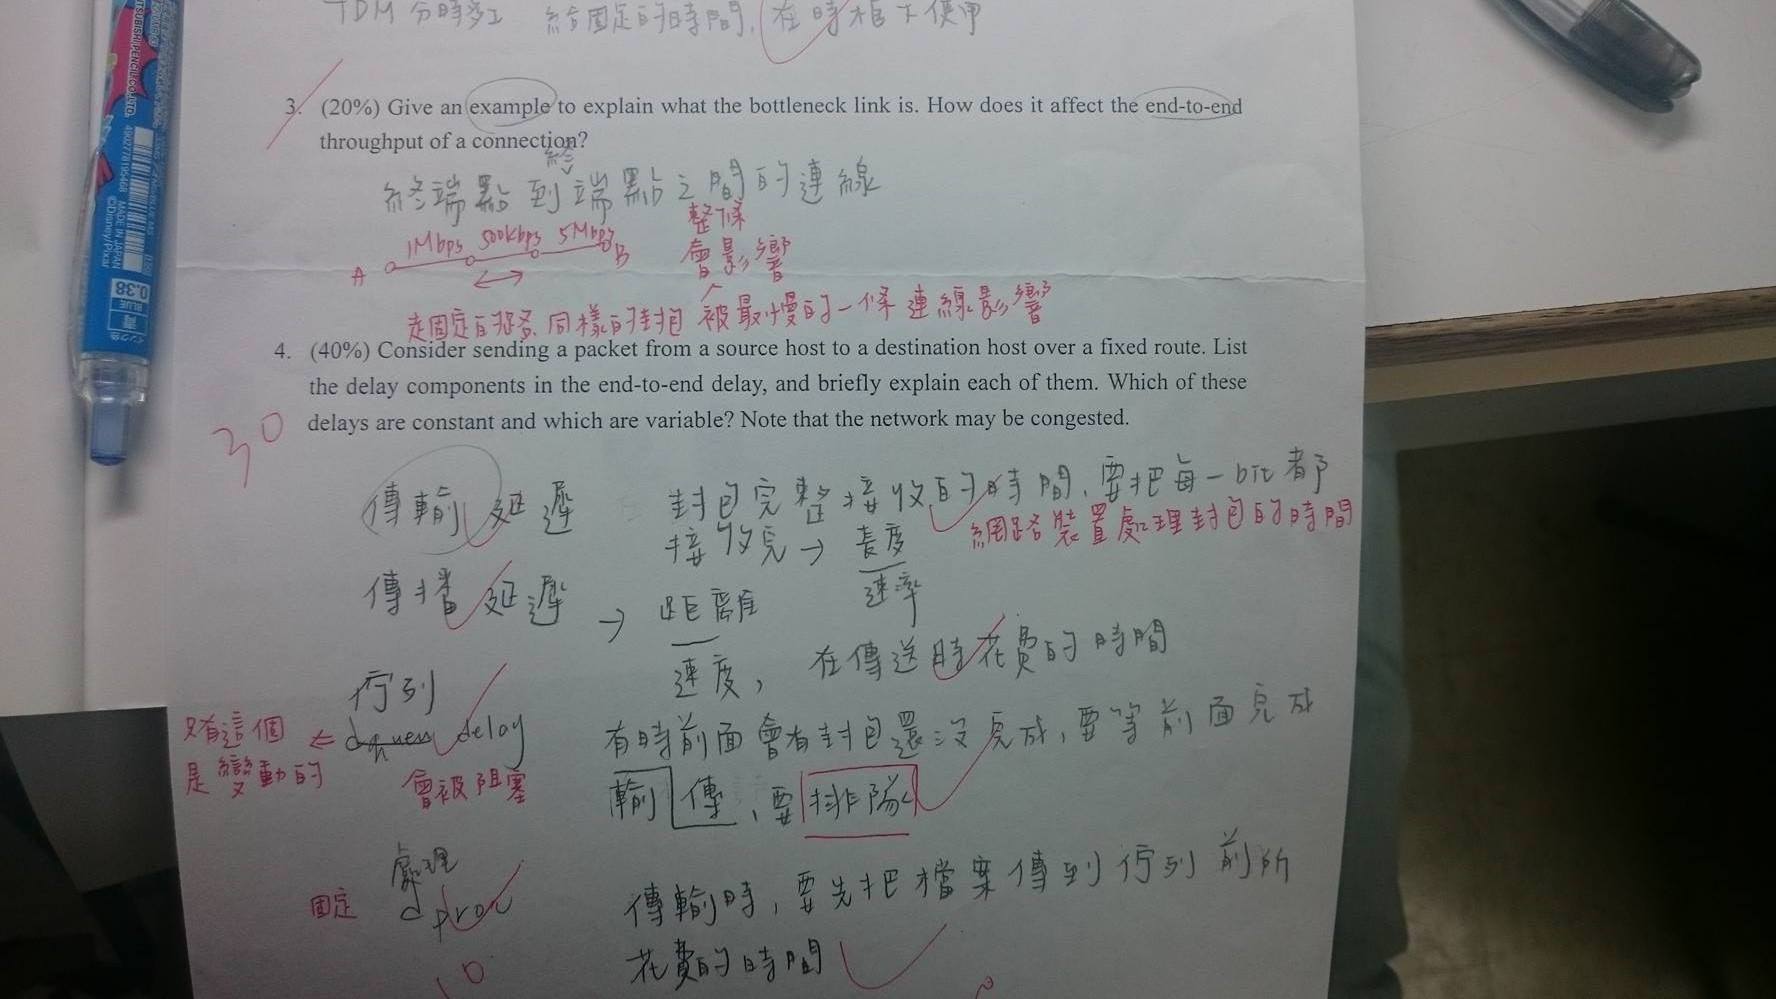 TDM 分時多工 給固定的時間,在時框下使用
3. (20%) Give an example to explain what the bottleneck link is. How does it affect the end-to-end
throughput of a connection?
終
終端點到端點之間的連線
1Mbps 500kbps 5Mbps
A B
整條
會影響
走固定的路、同樣的封包 被最慢的一條連線影響
4. (40%) Consider sending a packet from a source host to a destination host over a fixed route. List
the delay components in the end-to-end delay, and briefly explain each of them. Which of these
delays are constant and which are variable? Note that the network may be congested.
30
傳輸延遲 封包完整接收的時間,要把每一bit都
接收完 → 長度
速率
網路裝置處理封包的時間
傳播延遲 → 距離
速度, 在傳送時花費的時間
佇列
delay
只有這個
是變動的
會被阻塞
有時前面會有封包還沒完成,要等前面完成
輸傳、要排隊
處理
dproc
固定
傳輸時,要先把檔案傳到佇列前所
花費的時間
10
MITSUBISHI PENCIL CO., LTD.
MADE IN JAPAN
©Disney/Pixar
0.38
BLUE
青